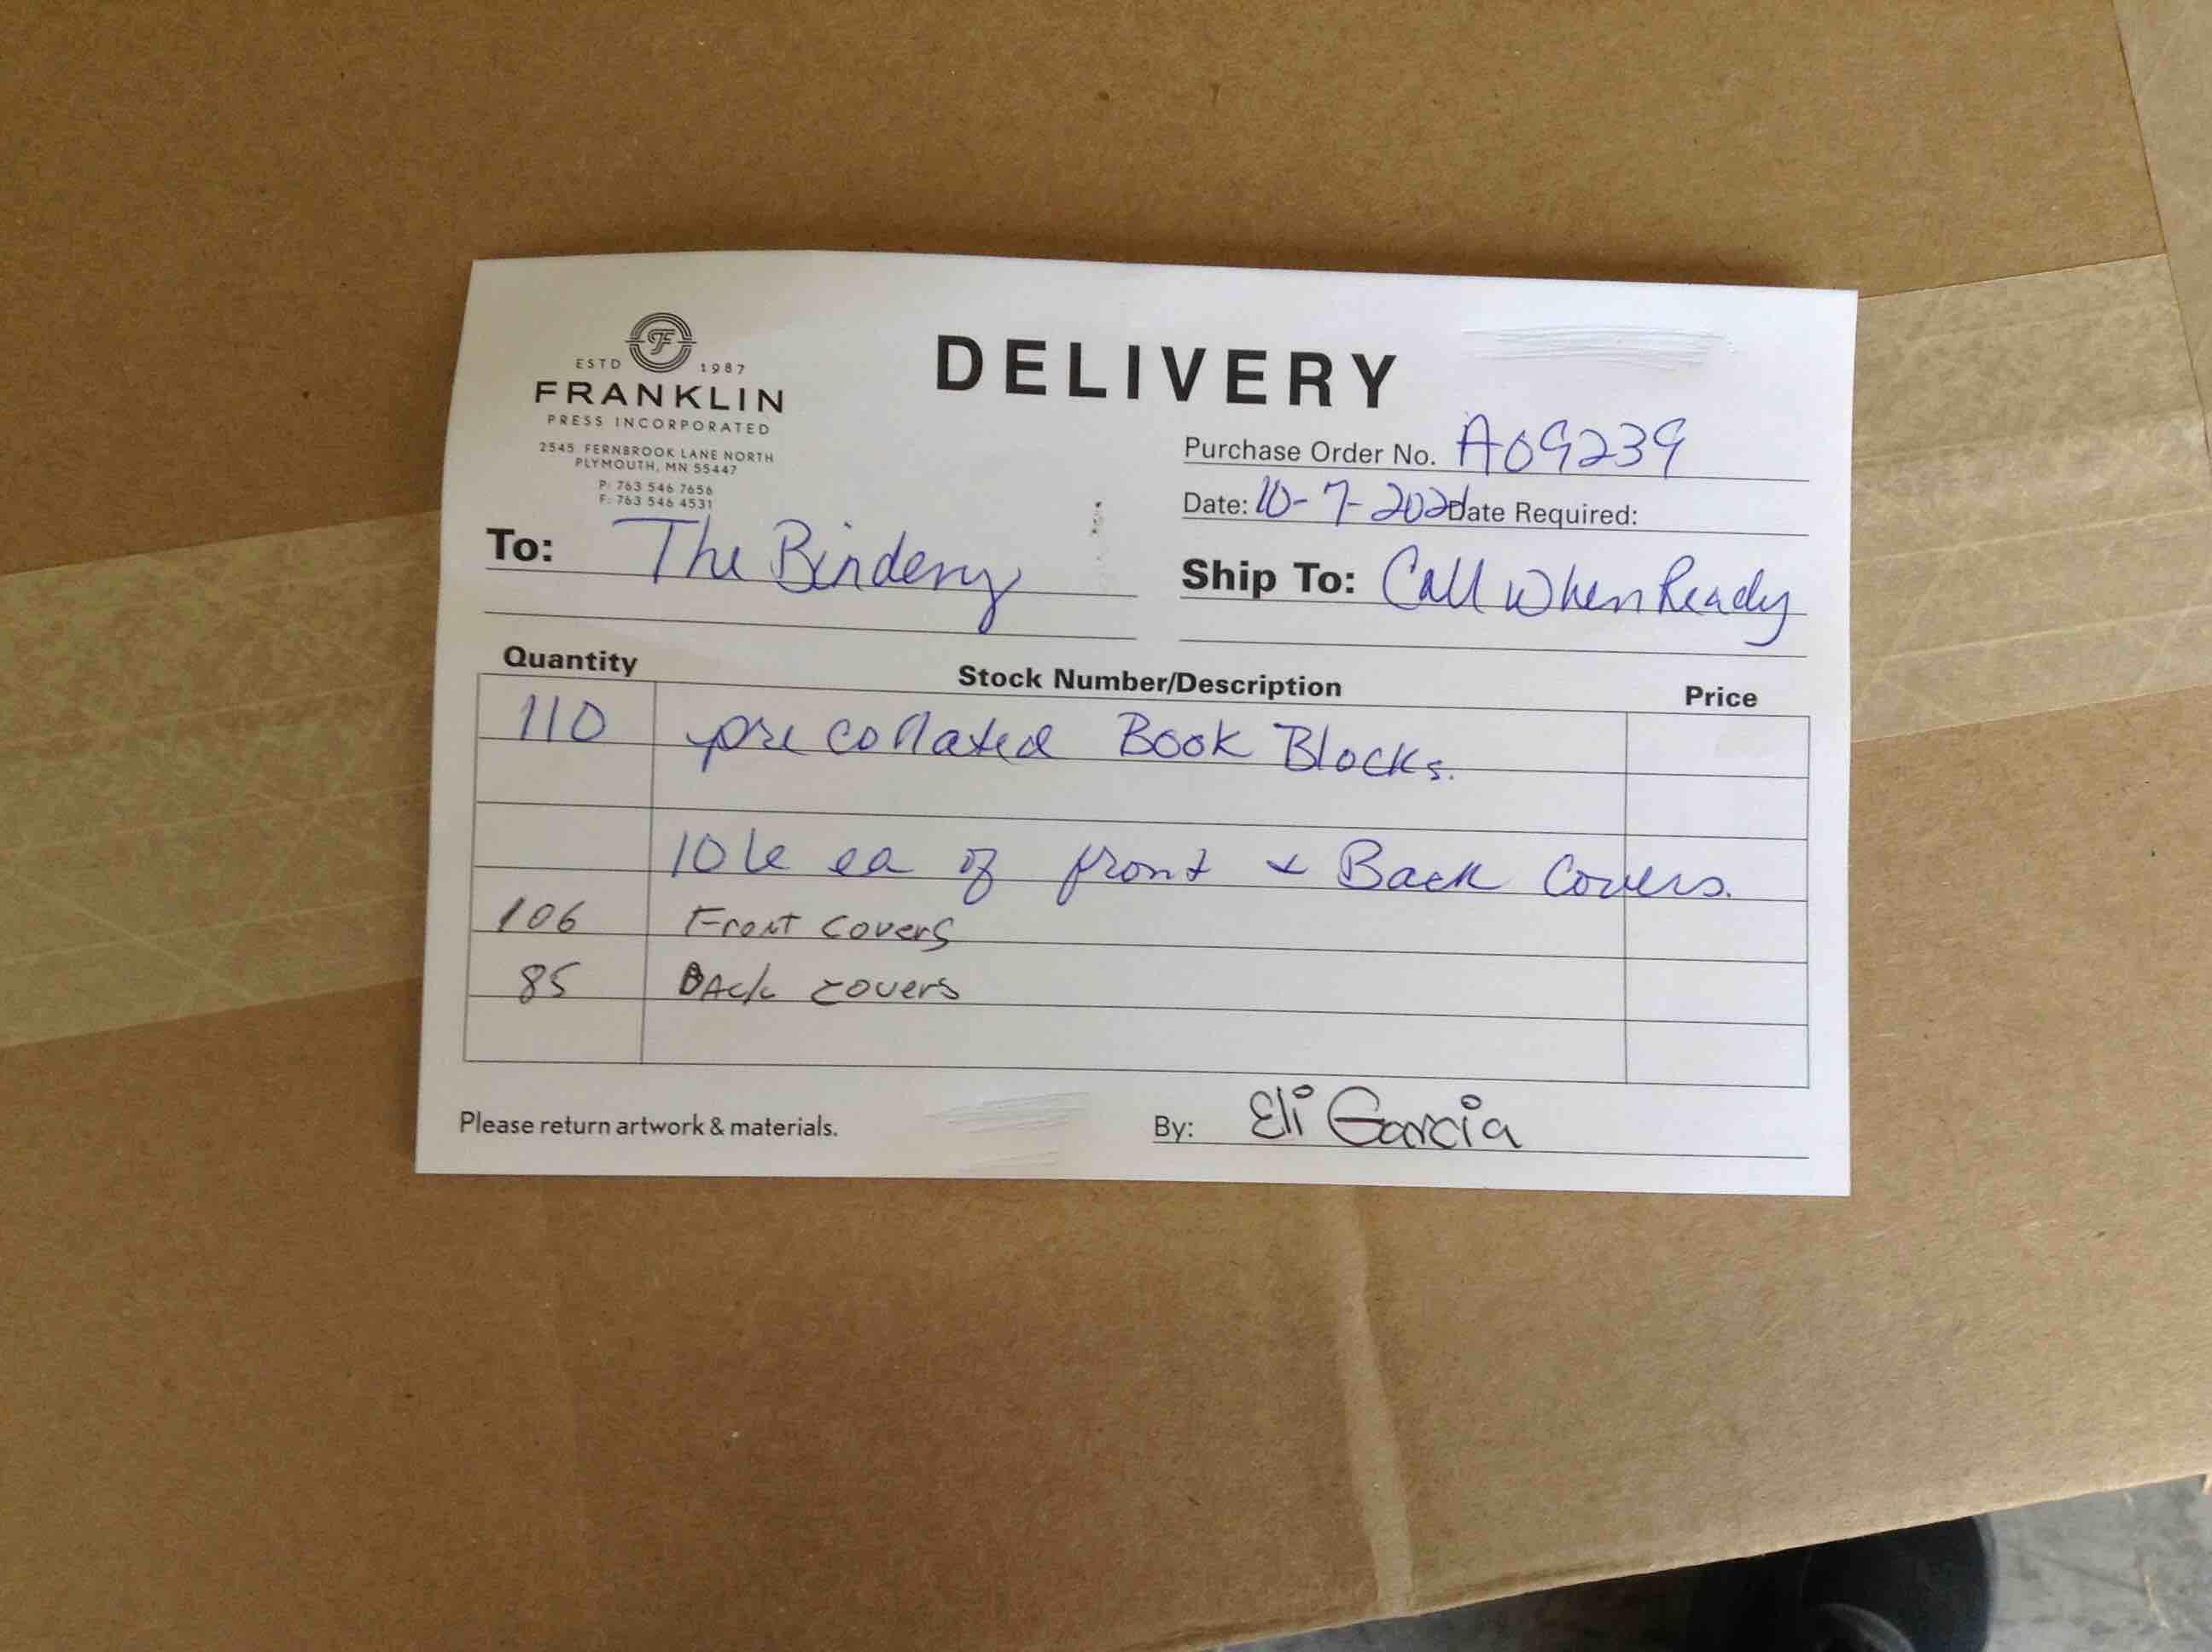 ESTD 1987
FRANKLIN
PRESS INCORPORATED
2545 FERNBROOK LANE NORTH
PLYMOUTH, MN 55447
P: 763 546 7656
F: 763 546 4531
DELIVERY
Purchase Order No. A09239
Date: 10-7-2022 Date Required:
To: The Bindery
Ship To: Call When Ready
Quantity Stock Number/Description Price
110 pre collated Book Blocks.
106 ea of front & Back Covers.
106 Front covers
85 Back covers
Please return artwork & materials.
By: Eli Garcia